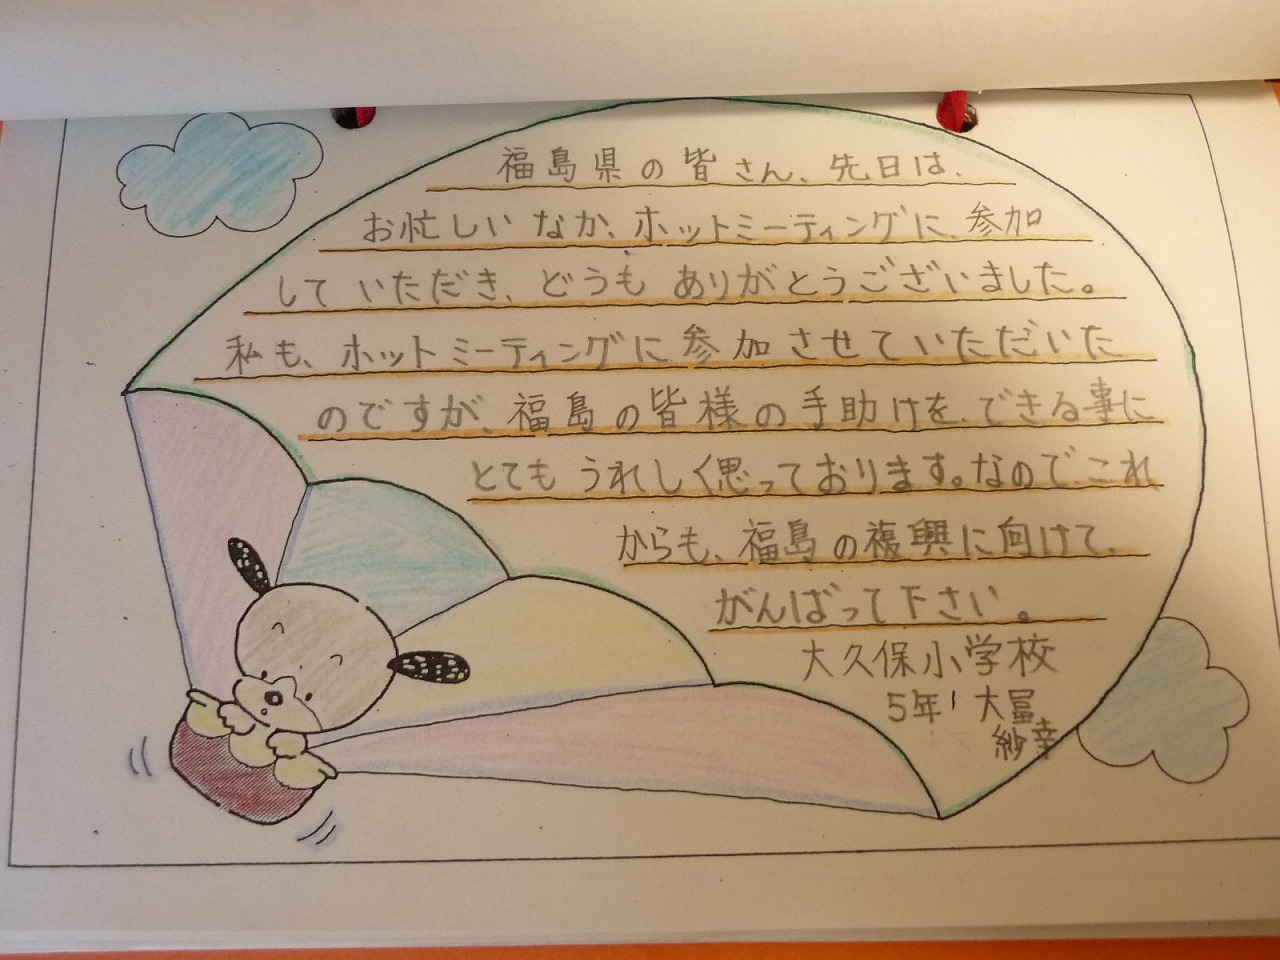 福島県の皆さん、先日は、
お忙しいなか、ホットミーティングに、参加
していただき、どうもありがとうございました。
私も、ホットミーティングに参加させていただいた
のですが、福島の皆様の手助けを、できる事に
とてもうれしく思っております。なので、これ
からも、福島の複興に向けて、
がんばって下さい。
大久保小学校
5年1大冨
紗幸